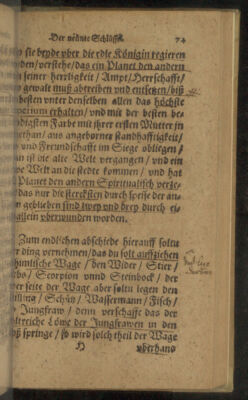 Der neundte Schlüssel. 74
sie beyde vber die edle Königin regieren
den/verstehe/das ein Planet den andern
seiner herrligkeit/Ampt/Herrschafft/
gewalt muß abtreiben vnd entsetzen/biß
besten vnter denselben allen das höchste
perium erhalten/vnd mit der besten be-
digsten Farbe mit ihrer ersten Mutter in
gethan/aus angeborner standhafftigkeit/
vnd Freundschafft im Siege obliegen/
ist die alte Welt vergangen/vnd ein
Welt an die stedte kommen/vnd hat
Planet den andern Spiritualisch verze-
das nur die stercksten durch speise der an-
geblieben sind zwey vnd drey durch ei-
allein vberwunden worden.
Zum endlichen abschiede hierauff soltu
ding vernehmen/das du solt auffziehen
himlische Wage/den Wider/Stier/
bs/Scorpion vnnd Steinbock/der
seite der Wage aber soltu legen den
illing/Schütz/Wassermann/Fisch/
Jungfraw/denn verschaffe das der
ltreiche Löwe der Jungfrawen in den
springe/so wird solch theil der Wage
vberhand